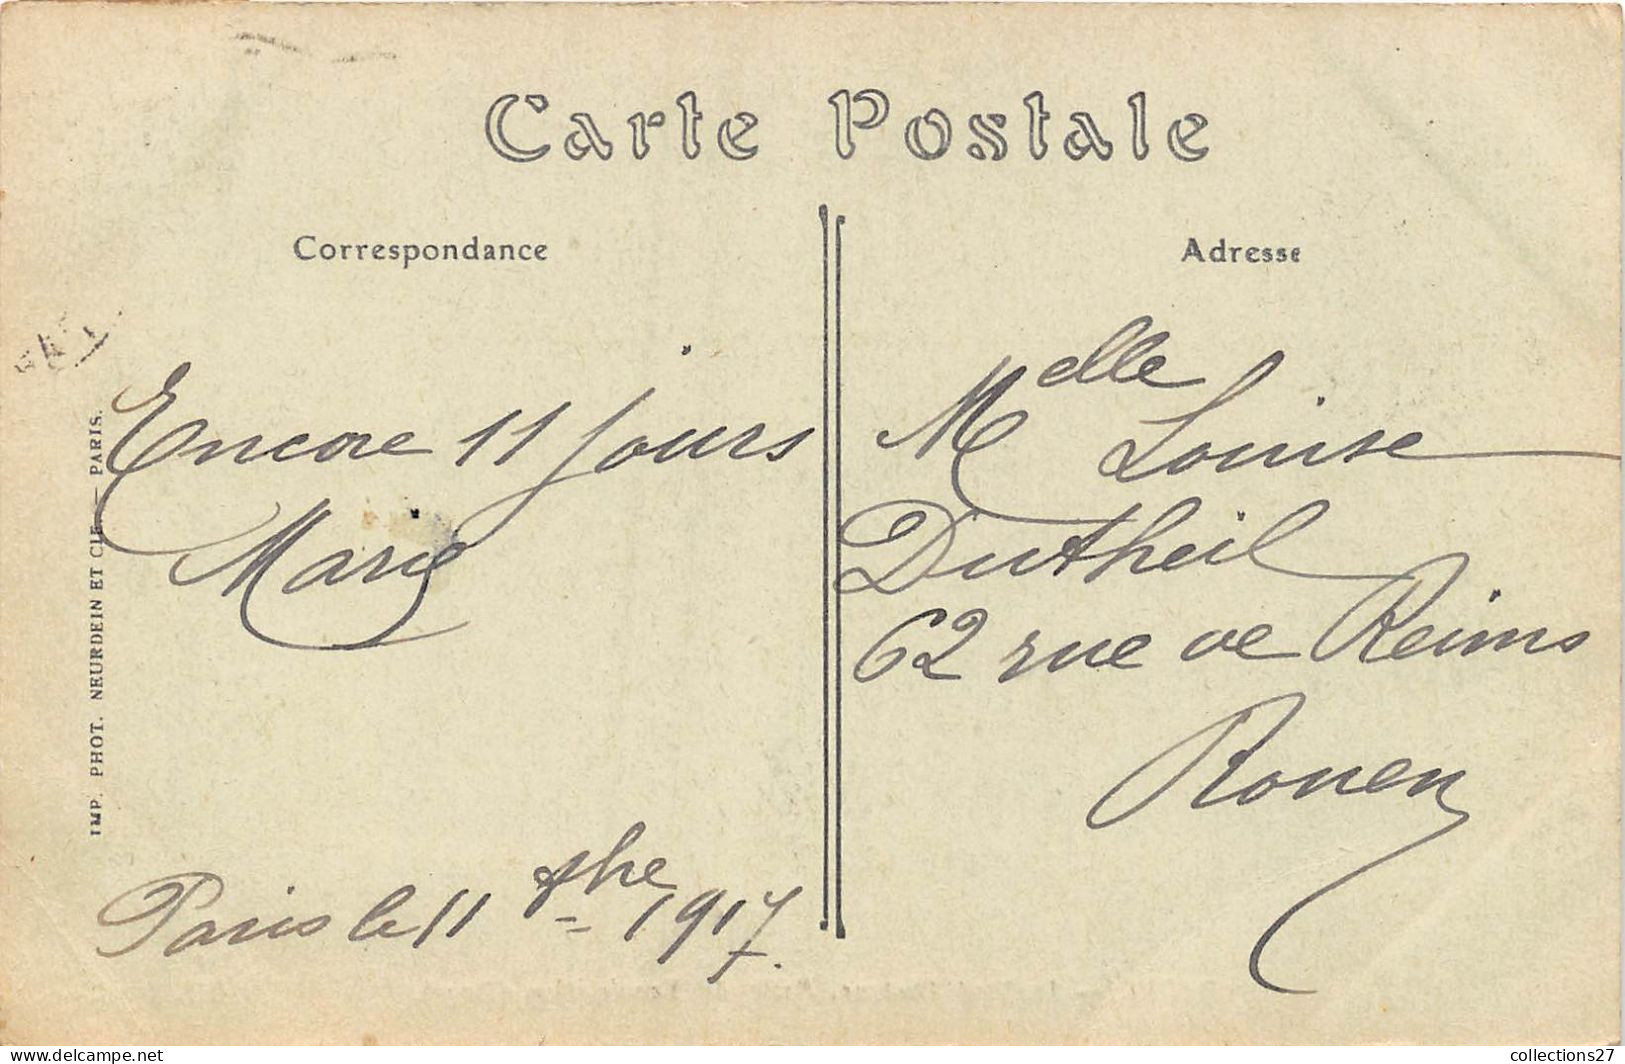 Carte Postale
Correspondance
Encore 11 jours
Marie
Paris le 11 1917.
IMP. PHOT. NEURDEIN ET CIE — PARIS.
Adresse
Melle Louise
Dutheil
62 rue de Reims
Rouen
collections27